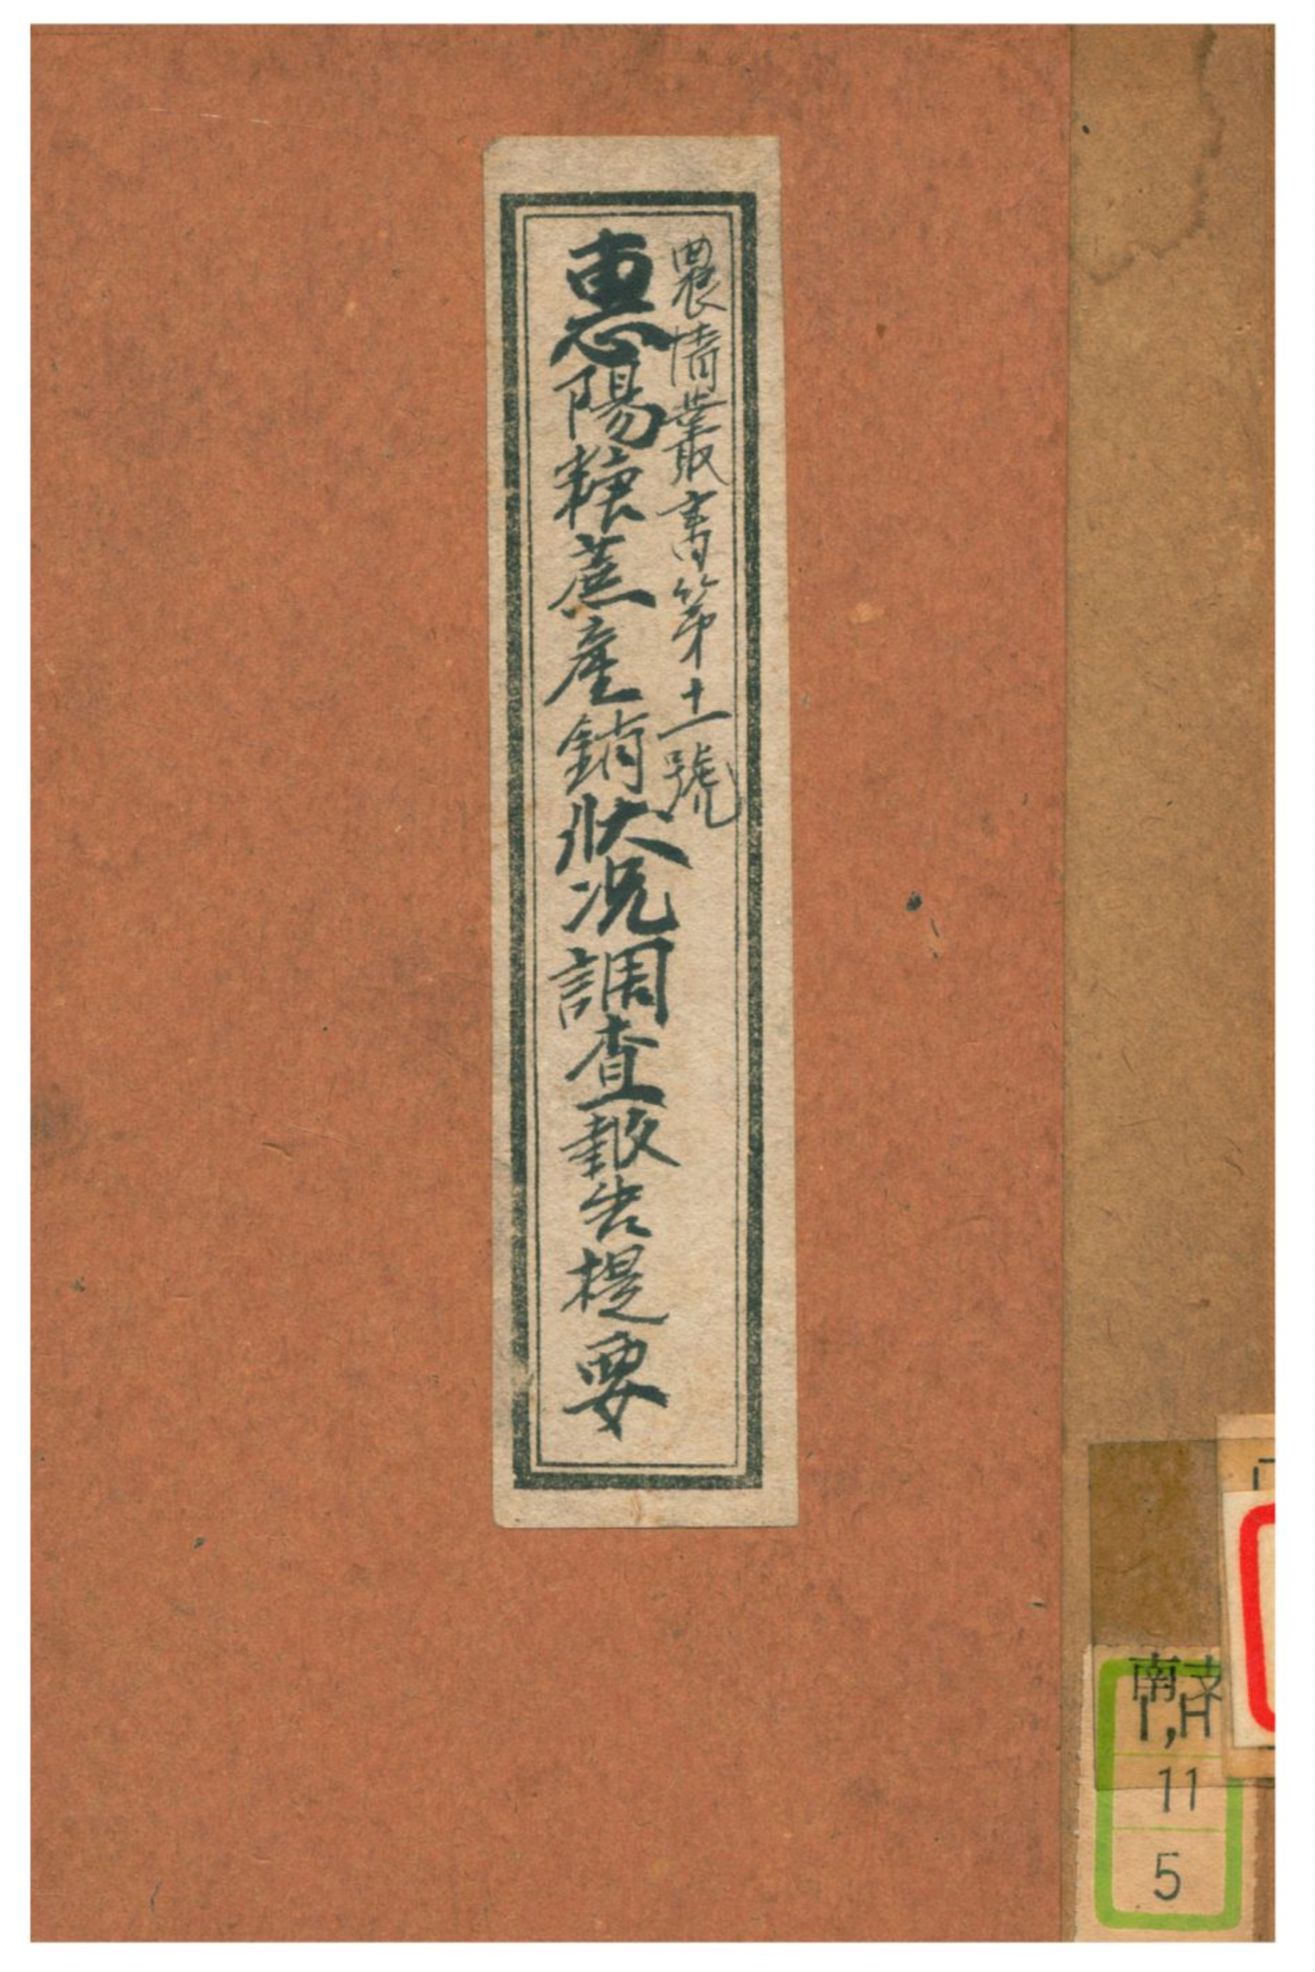 農情叢書第十一號
惠陽糖蔗產銷狀況調查報告提要
南支
11
5